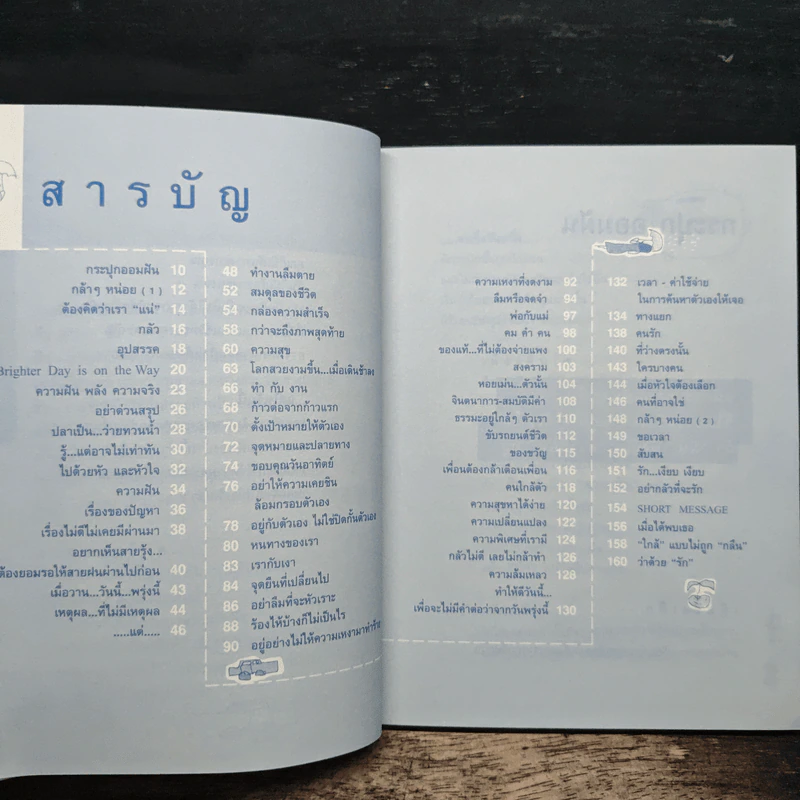 สารบัญ
กระปุกออมฝัน 10
กล้าๆ หน่อย (1) 12
ต้องคิดว่าเรา “แน่” 14
กลัว 16
อุปสรรค 18
Brighter Day is on the Way 20
ความฝัน พลัง ความจริง 23
อย่าด่วนสรุป 26
ปลาเป็น...ว่ายทวนน้ำ 28
รู้...แต่อาจไม่เท่าทัน 30
ไปด้วยหัว และหัวใจ 32
ความฝัน 34
เรื่องของปัญหา 36
เรื่องไม่ดีไม่เคยมีผ่านมา 38
อยากเห็นสายรุ้ง...
ต้องยอมรอให้สายฝนผ่านไปก่อน 40
เมื่อวาน...วันนี้...พรุ่งนี้ 43
เหตุผล...ที่ไม่มีเหตุผล 44
.....แต่..... 46
48 ทำงานลืมตาย
52 สมดุลของชีวิต
54 กล่องความสำเร็จ
58 กว่าจะถึงภาพสุดท้าย
60 ความสุข
63 โลกสวยงามขึ้น...เมื่อเดินช้าลง
66 ทำ กับ งาน
68 ก้าวต่อจากก้าวแรก
70 ตั้งเป้าหมายให้ตัวเอง
72 จุดหมายและปลายทาง
74 ขอบคุณวันอาทิตย์
76 อย่าให้ความเคยชิน
ล้อมกรอบตัวเอง
78 อยู่กับตัวเอง ไม่ใช่ปิดกั้นตัวเอง
80 หนทางของเรา
83 เรากับเงา
84 จุดยืนที่เปลี่ยนไป
86 อย่าลืมที่จะหัวเราะ
88 ร้องไห้บ้างก็ไม่เป็นไร
90 อยู่อย่างไม่ให้ความเหงามาทำร้าย
ความเหงาที่งดงาม 92
ลืมหรือจดจำ 94
พ่อกับแม่ 97
คม คำ คน 98
ของแท้...ที่ไม่ต้องจ่ายแพง 100
สงคราม 103
หอยเม่น...ตัวนั้น 104
จินตนาการ-สมบัติมีค่า 108
ธรรมะอยู่ใกล้ๆ ตัวเรา 110
ขับรถยนต์ชีวิต 112
ของขวัญ 115
เพื่อนต้องกล้าเตือนเพื่อน 116
คนใกล้ตัว 118
ความสุขหาได้ง่าย 120
ความเปลี่ยนแปลง 122
ความพิเศษที่เรามี 124
กลัวไม่ดี เลยไม่กล้าทำ 126
ความล้มเหลว 128
ทำให้ดีวันนี้...
เพื่อจะไม่มีคำต่อว่าจากวันพรุ่งนี้ 130
132 เวลา - ค่าใช้จ่าย
ในการค้นหาตัวเองให้เจอ
134 ทางแยก
138 คนรัก
140 ที่ว่างตรงนั้น
143 ใครบางคน
144 เมื่อหัวใจต้องเลือก
146 คนที่อาจใช่
148 กล้าๆ หน่อย (2)
149 ขอเวลา
150 สับสน
151 รัก...เงียบ เงียบ
152 อย่ากลัวที่จะรัก
154 SHORT MESSAGE
156 เมื่อได้พบเธอ
158 “ใกล้” แบบไม่ถูก “กลืน”
160 ว่าด้วย “รัก”